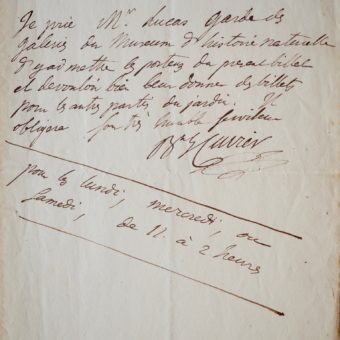 Je prie Mr. Lucas garde des
galeries du Museum d'histoire naturelle
d'y admettre le porteur du present billet
et de vouloir bien leur donner des billets
pour les autres parties du jardin. Il
obligera son très humble serviteur
Bn G Cuvier
pour les lundi, mercredi, ou
Samedi, de 11. à 2 heures